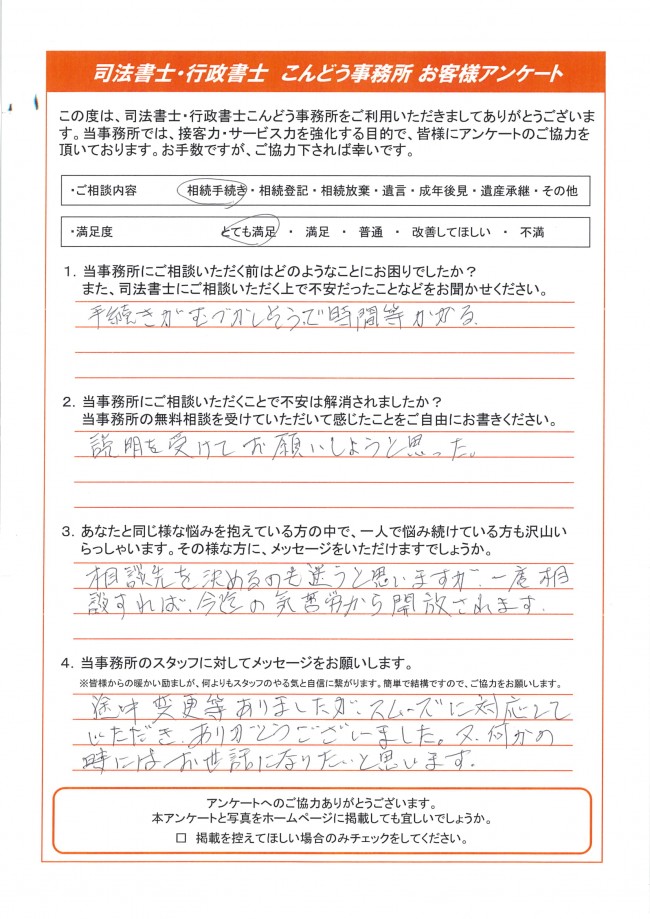 司法書士・行政書士 こんどう事務所 お客様アンケート
この度は、司法書士・行政書士こんどう事務所をご利用いただきましてありがとうございま
す。当事務所では、接客力・サービス力を強化する目的で、皆様にアンケートのご協力を
頂いております。お手数ですが、ご協力下されば幸いです。
・ご相談内容 相続手続き・相続登記・相続放棄・遺言・成年後見・遺産承継・その他
・満足度 とても満足 ・ 満足 ・ 普通 ・ 改善してほしい ・ 不満
1．当事務所にご相談いただく前はどのようなことにお困りでしたか？
また、司法書士にご相談いただく上で不安だったことなどをお聞かせください。
手続きがむづかしそうで時間等かかる。
2．当事務所にご相談いただくことで不安は解消されましたか？
当事務所の無料相談を受けていただいて感じたことをご自由にお書きください。
説明を受けてお願いしようと思った。
3．あなたと同じ様な悩みを抱えている方の中で、一人で悩み続けている方も沢山い
らっしゃいます。その様な方に、メッセージをいただけますでしょうか。
相談先を決めるのも迷うと思いますが、一度相
談すれば、今迄の気苦労から開放されます。
4．当事務所のスタッフに対してメッセージをお願いします。
※皆様からの暖かい励ましが、何よりもスタッフのやる気と自信に繋がります。簡単で結構ですので、ご協力をお願いします。
途中変更等ありましたが、スムーズに対応して
いただき、ありがとうございました。又、何かの
時にはお世話になりたいと思います。
アンケートへのご協力ありがとうございます。
本アンケートと写真をホームページに掲載しても宜しいでしょうか。
□ 掲載を控えてほしい場合のみチェックをしてください。